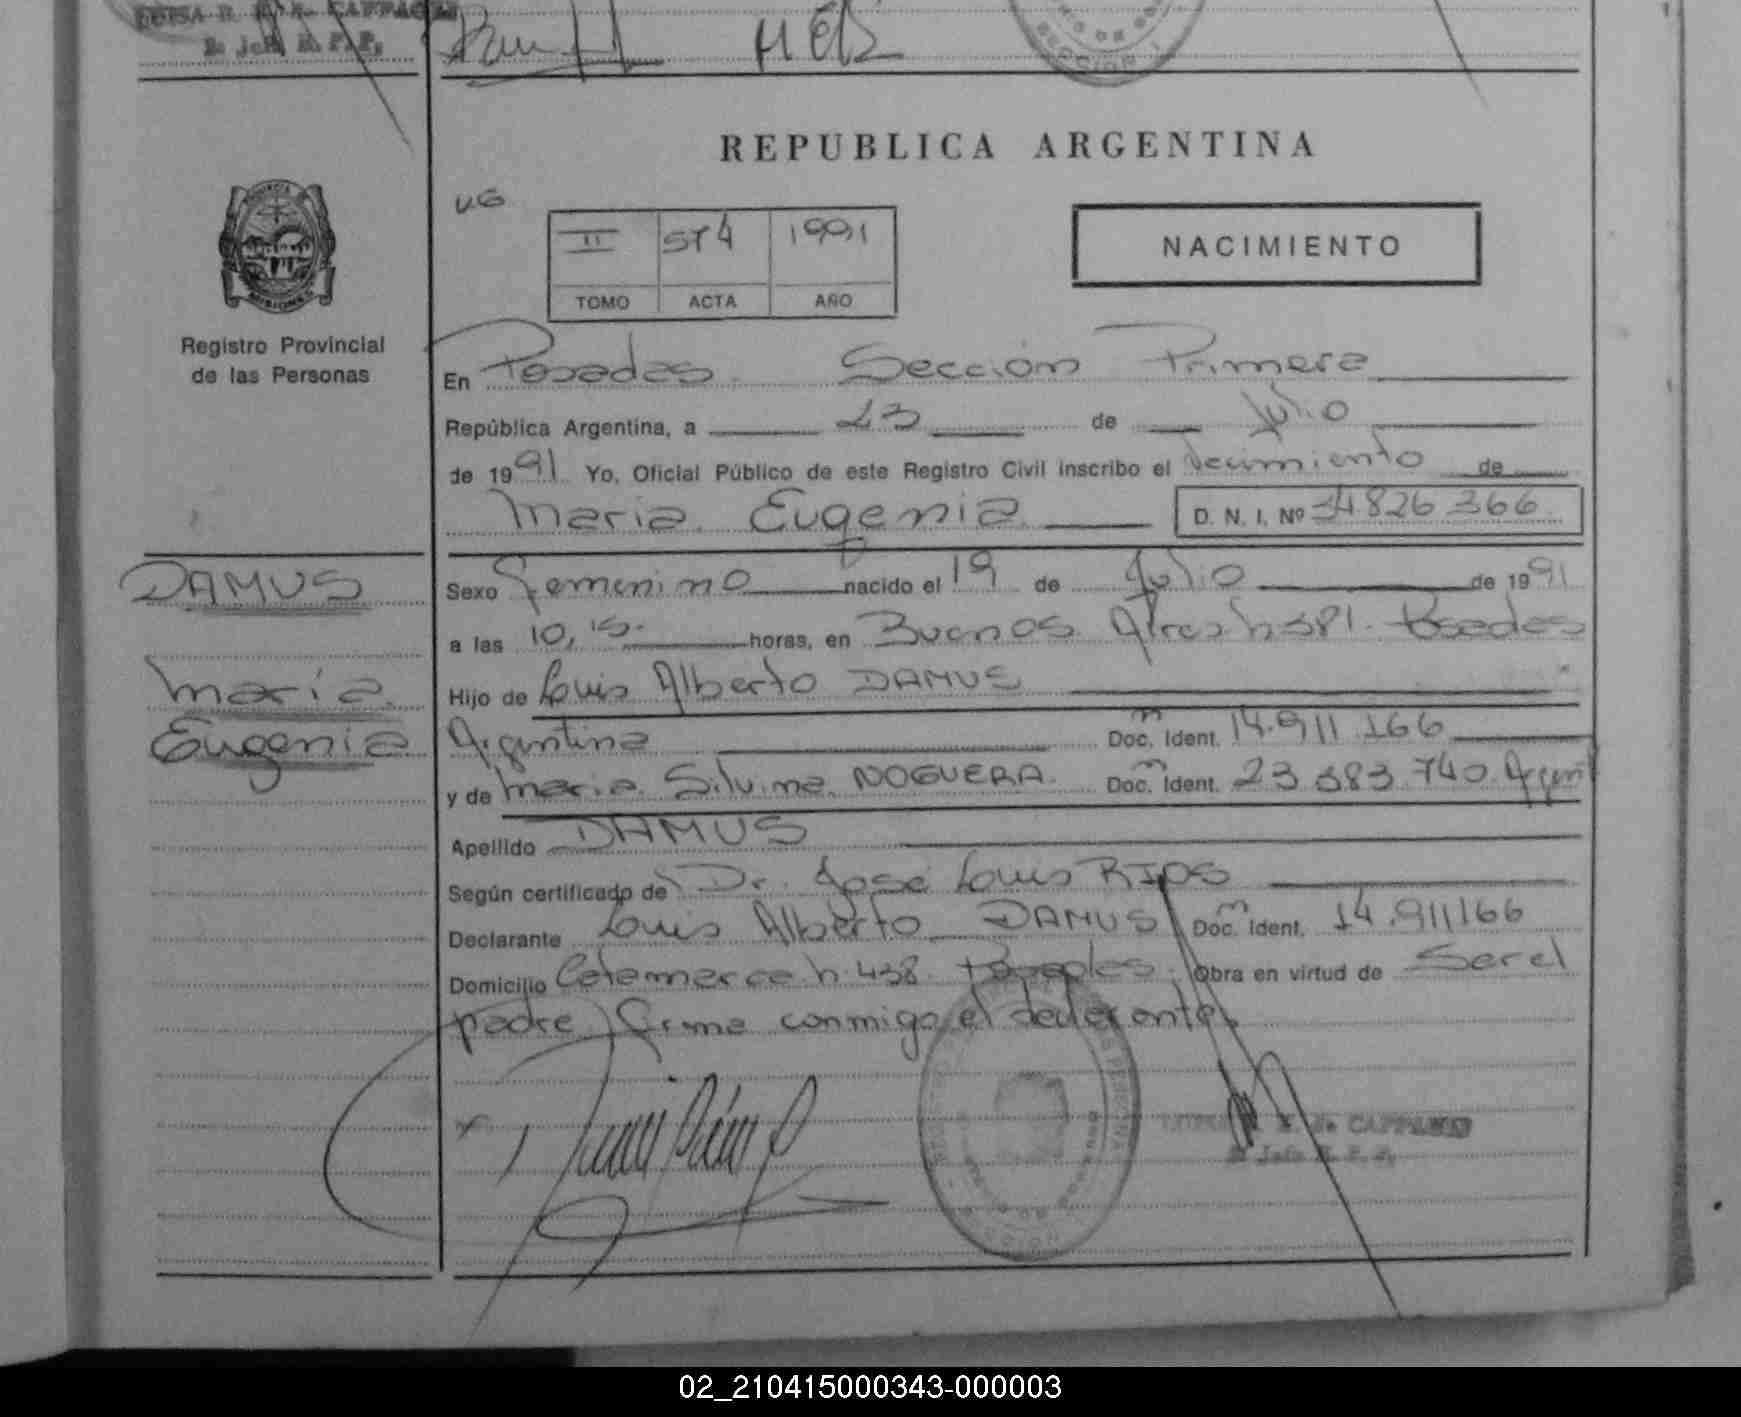 2. Jefe R. P. P.
REPUBLICA ARGENTINA
II 574 1991
TOMO ACTA AÑO
NACIMIENTO
MISIONES
Registro Provincial
de las Personas
En Posadas Sección Primera
República Argentina, a 23 de Julio
de 1991 Yo, Oficial Público de este Registro Civil inscribo el Nacimiento de
Maria Eugenia D. N. I. Nº 34826 366
DAMUS
María
Eugenia
Sexo Femenino nacido el 19 de Julio de 1991
a las 10,15 horas, en Buenos Aires hspl. Posadas
Hijo de Louis Alberto DAMUS
Argentina Doc. Ident. 14.911.166
y de Maria Silvina NOGUERA Doc. Ident. 23 383 740 Argent
Apellido DAMUS
Según certificado de Dr. José Louis RIOS
Declarante Louis Alberto DAMUS Doc. Ident. 14.911166
Domicilio Catamarca h. 438 Posadas Obra en virtud de Ser el
padre firma conmigo el declarante
2 Jefe R. P. P.
02_210415000343-000003